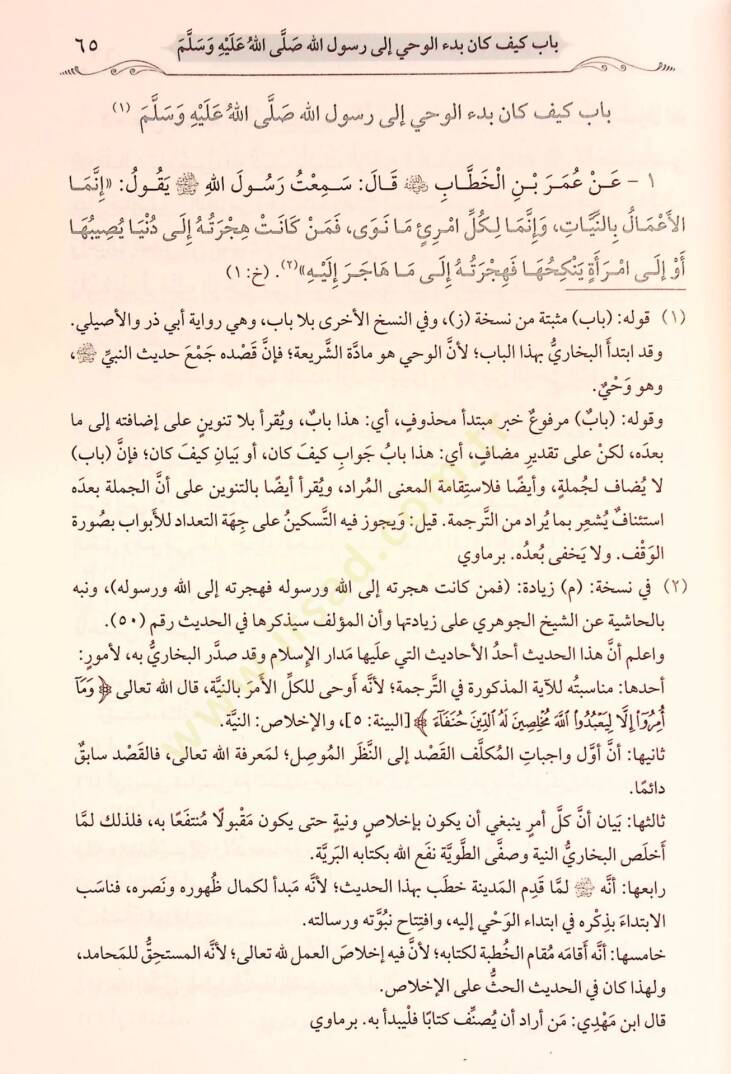 باب كيف كان بدء الوحي إلى رسول الله صَلَّى اللهُ عَلَيْهِ وَسَلَّمَ ٦٥
باب كيف كان بدء الوحي إلى رسول الله صَلَّى اللهُ عَلَيْهِ وَسَلَّمَ (١)
١ - عَنْ عُمَرَ بْنِ الْخَطَّابِ ﵁ قَالَ: سَمِعْتُ رَسُولَ اللهِ ﷺ يَقُولُ: «إِنَّمَا
الأَعْمَالُ بِالنِّيَّاتِ، وَإِنَّمَا لِكُلِّ امْرِئٍ مَا نَوَى، فَمَنْ كَانَتْ هِجْرَتُهُ إِلَى دُنْيَا يُصِيبُهَا
أَوْ إِلَى امْرَأَةٍ يَنْكِحُهَا فَهِجْرَتُهُ إِلَى مَا هَاجَرَ إِلَيْهِ»(٢). (خ: ١)
(١) قوله: (باب) مثبتة من نسخة (ز)، وفي النسخ الأخرى بلا باب، وهي رواية أبي ذر والأصيلي.
وقد ابتدأَ البخاريُّ بهذا الباب؛ لأنَّ الوحي هو مادَّة الشَّريعة؛ فإنَّ قَصْده جَمْعَ حديث النبيِّ ﷺ،
وهو وَحْيٌ.
وقوله: (بابٌ) مرفوعٌ خبر مبتدأ محذوفٍ، أي: هذا بابٌ، ويُقرأ بلا تنوينٍ على إضافته إلى ما
بعدَه، لكنْ على تقديرِ مضافٍ، أي: هذا بابُ جَوابِ كيفَ كان، أو بيَانِ كيفَ كان؛ فإنَّ (باب)
لا يُضاف لجُملةٍ، وأيضًا فلاستِقامة المعنى المُراد، ويُقرأ أيضًا بالتنوين على أنَّ الجملة بعدَه
استئنافٌ يُشعِر بما يُراد من التَّرجمة. قيل: وَيجوز فيه التَّسكينُ على جِهَة التعداد للأبواب بصُورة
الوَقْف. ولا يَخفى بُعدُه. برماوي
(٢) في نسخة: (م) زيادة: (فمن كانت هجرته إلى الله ورسوله فهجرته إلى الله ورسوله)، ونبه
بالحاشية عن الشيخ الجوهري على زيادتها وأن المؤلف سيذكرها في الحديث رقم (٥٠).
واعلم أنَّ هذا الحديث أحدُ الأحاديث التي علَيها مَدار الإسلام وقد صدَّر البخاريُّ به، لأمورٍ:
أحدها: مناسبتُه للآية المذكورة في التَّرجمة؛ لأنَّه أَوحى للكلِّ الأَمرَ بالنيَّة، قال الله تعالى ﴿وَمَآ
أُمِرُوٓا۟ إِلَّا لِيَعْبُدُوا۟ ٱللَّهَ مُخْلِصِينَ لَهُ ٱلدِّينَ حُنَفَآءَ﴾ [البينة: ٥]، والإخلاص: النيَّة.
ثانيها: أنَّ أوَّل واجباتِ المُكلَّف القَصْد إلى النَّظَر المُوصِل؛ لمَعرفة الله تعالى، فالقَصْد سابقٌ
دائمًا.
ثالثها: بَيان أنَّ كلَّ أمرٍ ينبغي أن يكون بإخلاصٍ ونيةٍ حتى يكون مَقْبولًا مُنتفَعًا به، فلذلك لمَّا
أَخلَص البخاريُّ النية وصفَّى الطَّويَّة نفَع الله بكتابه البَريَّة.
رابعها: أنَّه ﷺ لمَّا قَدِم المَدينة خطَب بهذا الحديث؛ لأنَّه مَبدأ لكمال ظُهوره ونَصره، فناسَب
الابتداءَ بذِكْره في ابتداء الوَحْي إليه، وافتِتاح نبُوَّته ورسالته.
خامسها: أنَّه أَقامَه مُقام الخُطبة لكتابه؛ لأنَّ فيه إخلاصَ العمل لله تعالى؛ لأنَّه المستحِقُّ للمَحامد،
ولهذا كان في الحديث الحثُّ على الإخلاص.
قال ابن مَهْدِي: مَن أراد أن يُصنِّف كتابًا فلْيبدأ به. برماوي